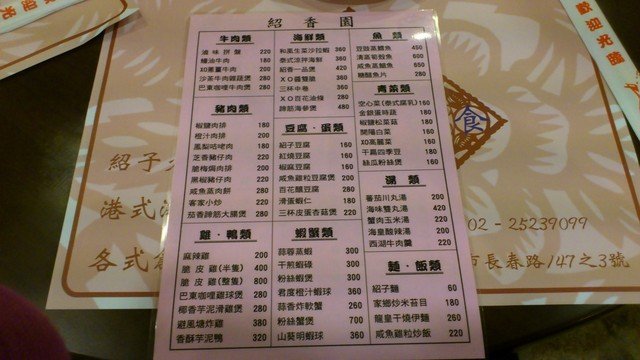 紹香園
牛肉類
滷味拼盤 220
蠔油牛肉 180
XO蔥薑牛肉 200
沙茶牛肉雞蔬煲 280
巴東咖哩牛肉煲 280
豬肉類
椒鹽肉排 180
橙汁肉排 200
鳳梨咕咾肉 180
芝香豬仔肉 220
脆梅燒肉排 200
黑椒豬仔肉 220
咸魚蒸肉餅 280
客家小炒 220
茄香蹄筋大腸煲 280
雞・鴨類
麻辣雞 200
脆皮雞(半隻) 400
脆皮雞(整隻) 800
巴東咖哩雞球煲 280
椰香芋泥滑雞煲 280
避風塘炸雞 380
香酥芋泥鴨 320
海鮮類
和風生菜沙拉蝦 360
泰式涼拌海鮮 360
紹香一品煲 420
XO醬雙龍 360
三杯中卷 360
XO百花油條 280
蹄筋海參煲 480
豆腐・蛋類
紹子豆腐 160
紅燒豆腐 160
椒麻豆腐 160
咸魚雞粒豆腐煲 200
百花釀豆腐 280
滑蛋蝦仁 180
三杯皮蛋香菇煲 220
蝦蟹類
蒜蓉蒸蝦 300
干煎蝦碌 300
粉絲蝦煲 300
君度橙汁蝦球 360
蒜香炸軟蟹 260
粉絲蟹煲 700
山葵明蝦球 360
魚類
豆豉蒸鱈魚 450
清蒸筍殼魚 600
咸魚蒸鱈魚 650
糖醋魚片 280
青菜類
空心菜(泰式腐乳) 160
金銀蛋時蔬 160
椒鹽松菜菇 180
開陽白菜 160
XO高麗菜 160
干扁四季豆 180
絲瓜粉絲煲 160
湯類
蕃茄川丸湯 200
海味雙丸湯 420
蟹肉玉米湯 220
海皇酸辣湯 200
西湖牛肉羹 220
麵・飯類
紹子麵 60
家鄉炒米苔目 180
龍皇干燒伊麵 260
咸魚雞粒炒飯 220
歡迎光臨
食
紹子
港式
各式
02-25239099
市長春路147之3號